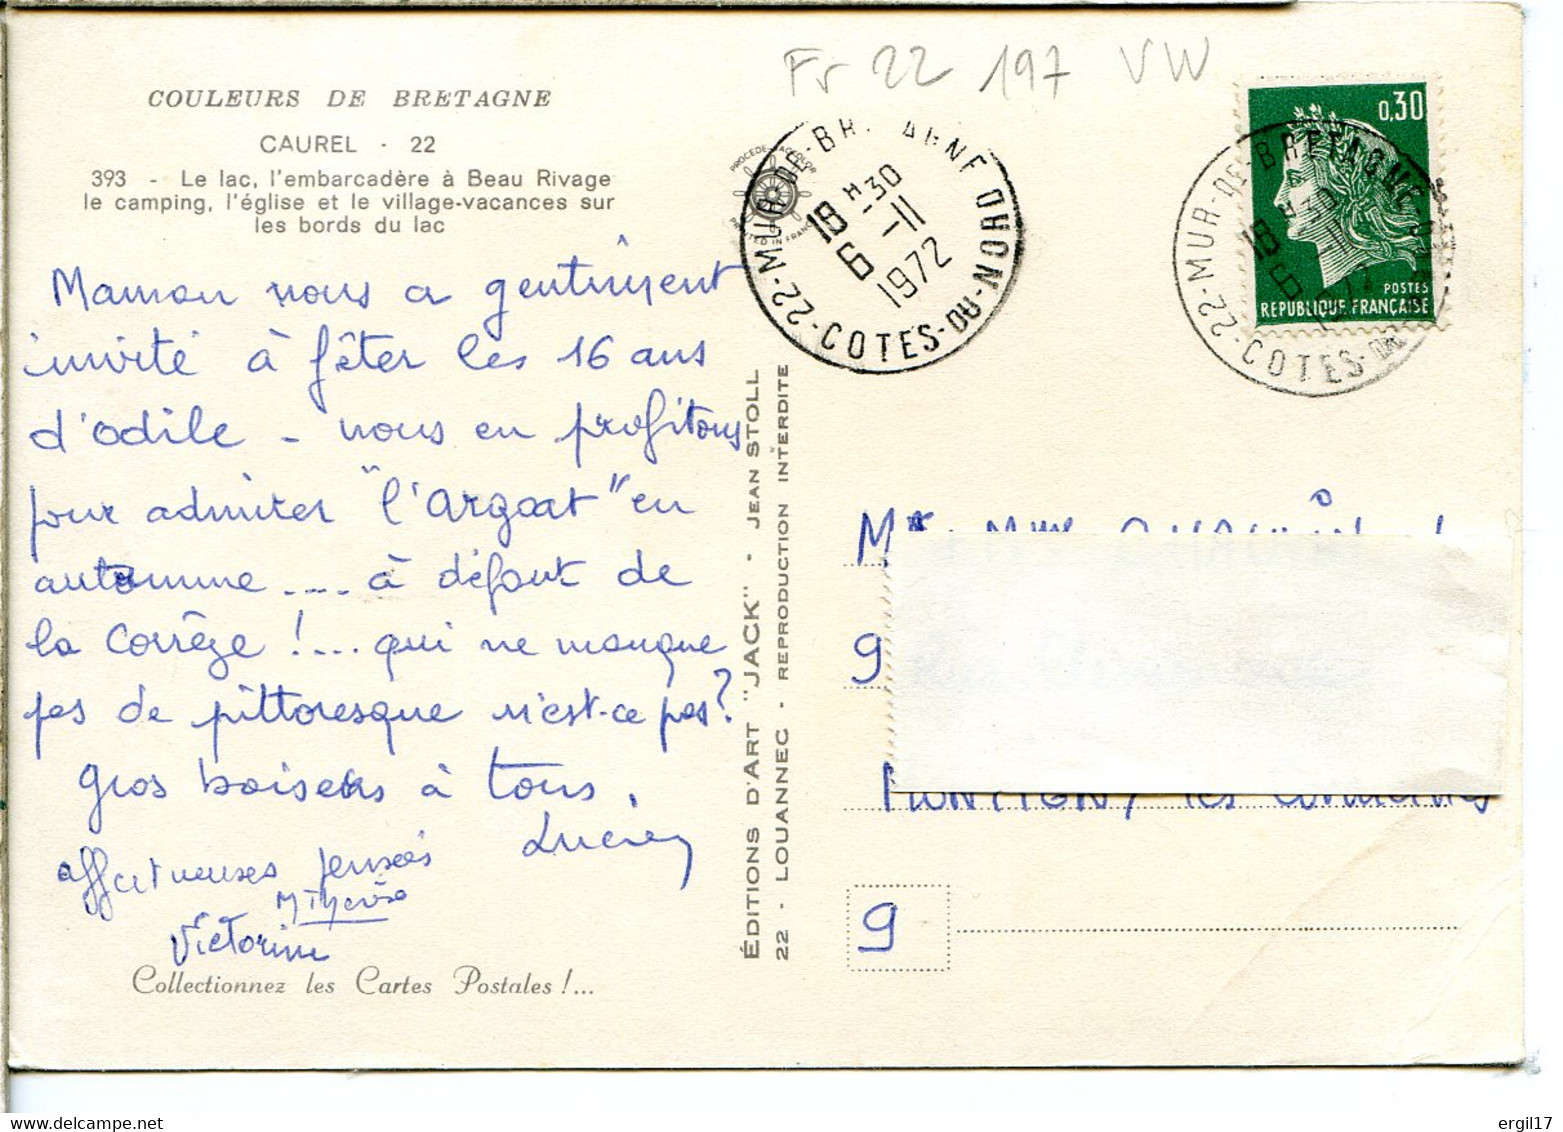 Fr 22 197 VW
COULEURS DE BRETAGNE
CAUREL - 22
393 - Le lac, l'embarcadère à Beau Rivage
le camping, l'église et le village-vacances sur
les bords du lac
Maman nous a gentiment
invité à fêter les 16 ans
d'Odile - nous en profitons
pour admirer "l'Argoat" en
automne .... à défaut de
la Corrèze !.... qui ne manque
pas de pittoresque n'est-ce pas ?
Gros baisers à tous.
Lucien
affectueuses pensées
M Thérèse
Victorine
Collectionnez les Cartes Postales !...
ÉDITIONS D'ART "JACK" - JEAN STOLL
22 - LOUANNEC - REPRODUCTION INTERDITE
PROCÉDÉ
PRINTED IN FRANCE
22-MUR-DE-BRETAGNE
COTES-DU-NORD
18 H -30
6 -11
1972
0,30
POSTES
REPUBLIQUE FRANÇAISE
22-MUR-DE-BRETAGNE
COTES-DU-
18 H 30
6
Mr Mme
9
MONTIGNY les Cormeilles
9
ergil17